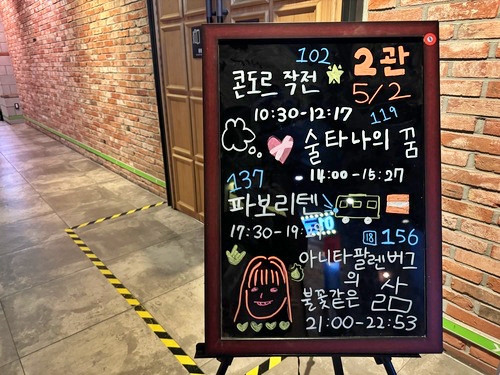 102
2관
콘도르 작전
5/2
10:30-12:17
119
술타나의 꿈
14:00-15:27
137
파보리텐
17:30-19:
18 156
아니타 팔렌버그
의
불꽃같은 삶
21:00-22:53